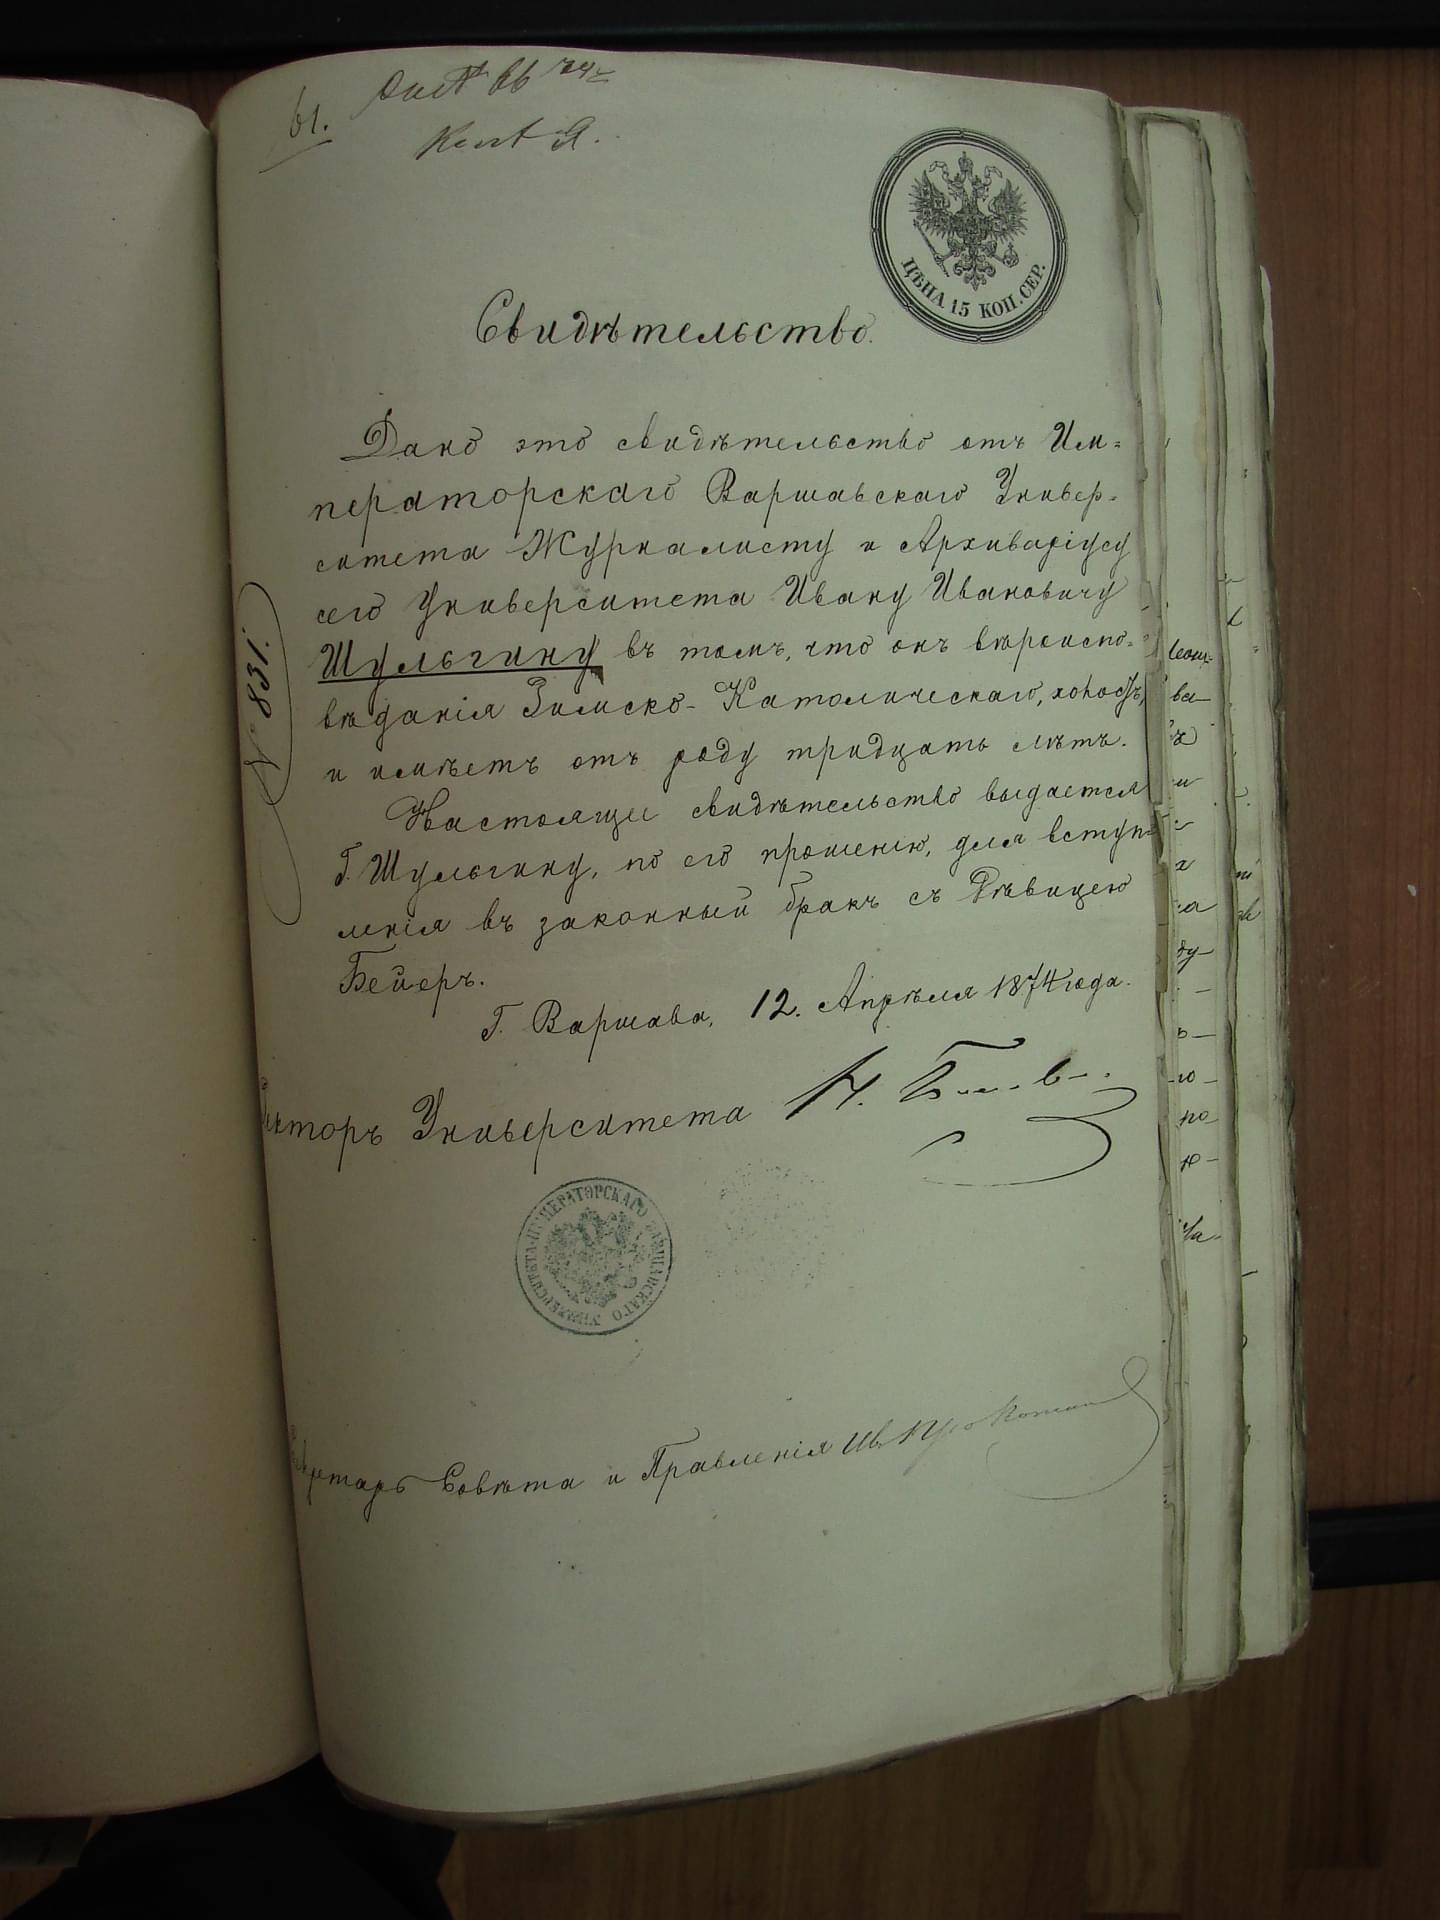 61.
ЦѢНА 15 КОП. СЕР.
Свидѣтельство.
Дано это свидѣтельство отъ Им=
ператорскаго Варшавскаго Универ-
ситета Журналисту и Архиваріусу
сего Университета Ивану Ивановичу
Шульгину въ томъ, что онъ вѣроиспо-
вѣданія Римско-Католическаго, холостъ,
и имѣетъ отъ роду тридцать лѣтъ.
Настоящее свидѣтельство выдается
Г. Шульгину, по его прошенію, для вступ-
ленія въ законный бракъ съ Дѣвицею
Бейеръ.
Г. Варшава, 12. Апрѣля 1874 года.
№ 831.
Ректоръ Университета Н.
УНИВЕРСИТЕТА ИМПЕРАТОРСКАГО ВАРШАВСКАГО
Секретарь Совѣта и Правленія